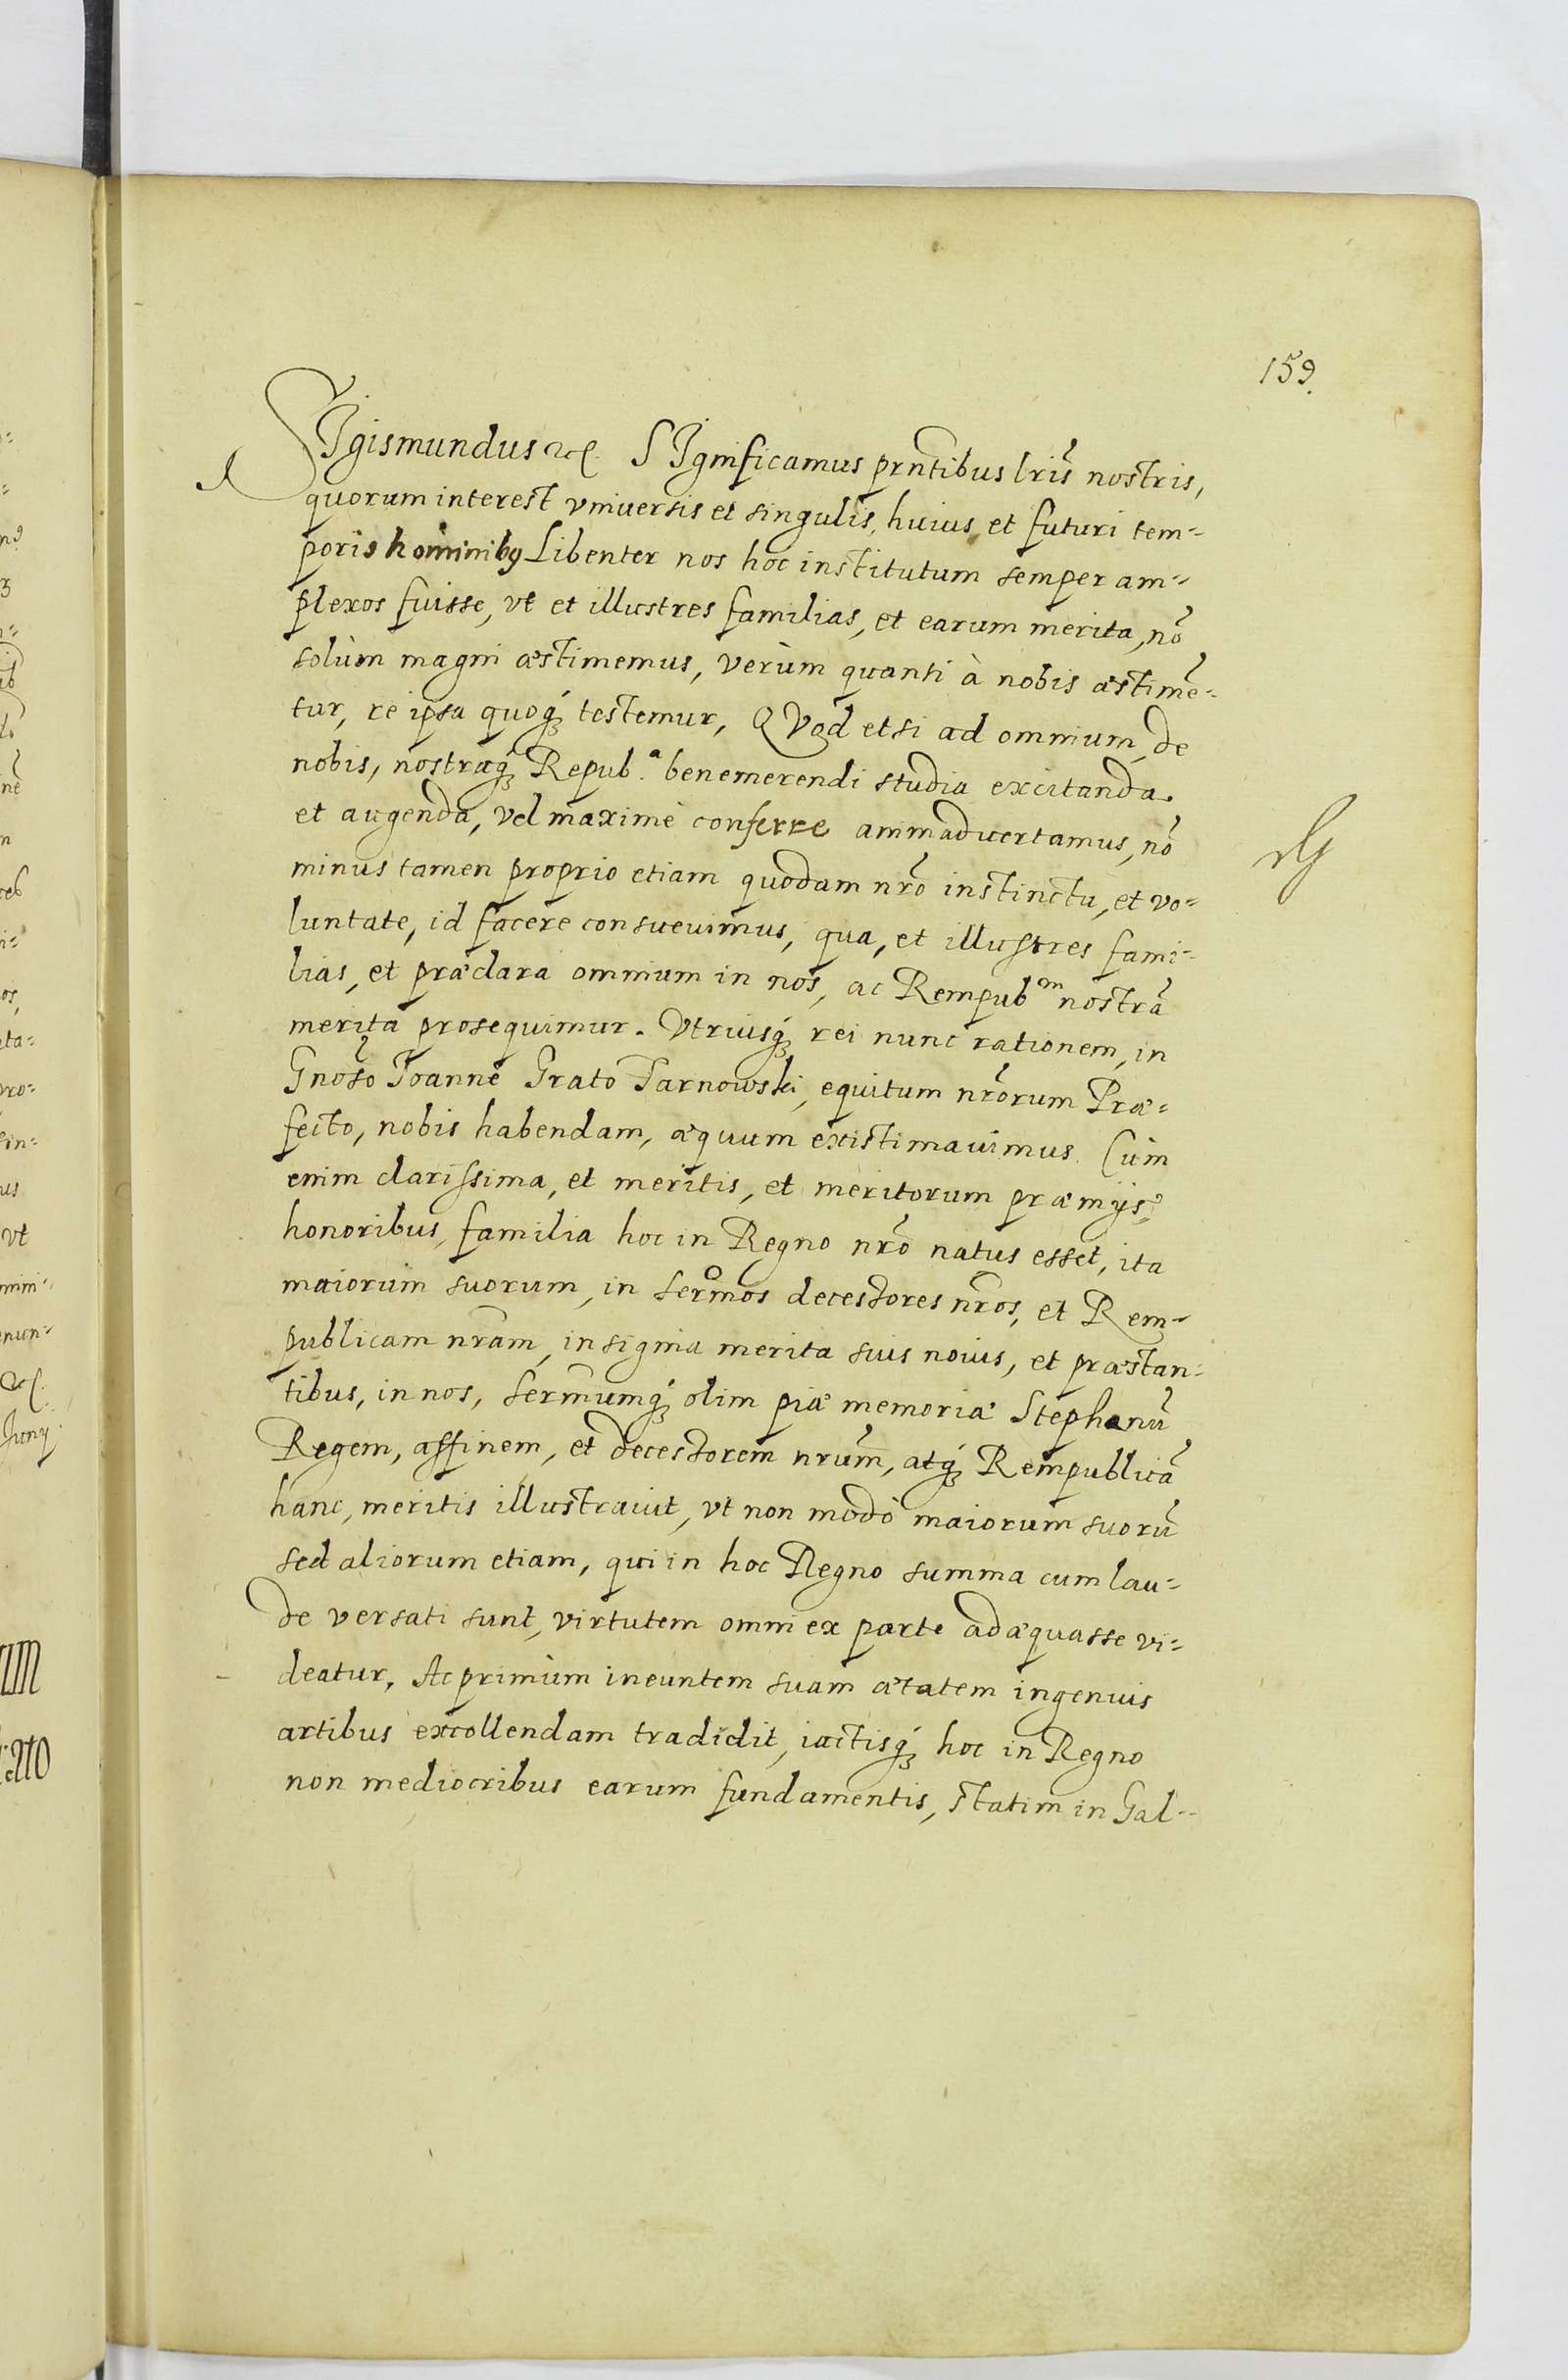 159.
SIgismundus etc. SIgnificamus prntibus lris nostris,
quorum interest vniuersis et singulis, huius, et futuri tem-
poris hominibq Libenter nos hoc institutum semper am-
plexos fuisse, vt et illustres familias, et earum merita, nō
solùm magni æstimemus, verùm quanti à nobis æstimē-
tur, re ipsa quoq́ testemur, QVod etsi ad omnium, de
nobis, nostraq́ Repub.ª benemerendi studia excitanda
et augenda, vel maximè conferre animaduertamus, nō
minus tamen proprio etiam quodam nrō instinctu, et vo-
luntate, id facere consueuimus, qua, et illustres fami-
lias, et præclara omnium in nos, ac Rempub.ᵐ nostrā
merita prosequimur. Vtriusq́ rei nunc rationem, in
Gnōso Ioannē Grato Tarnowski, equitum nrōrum Præ-
fecto, nobis habendam, æquum existimauimus. Cùm
enim clarissima, et meritis, et meritorum præmijs,
honoribus, familia hoc in Regno nrō natus esset, ita
maiorum suorum, in sermos decessores nros, et Rem-
publicam nram, insignia merita suis nouis, et præstan-
tibus, in nos, sermumq́ olim piæ memoriæ Stephanū
Regem, affinem, et decessorem nrum, atq́ Rempublicā
hanc, meritis illustrauit, vt non modò maiorum suorū
sed aliorum etiam, qui in hoc Regno summa cum lau-
de versati sunt, virtutem omni ex parte adæquasse vi-
deatur. Ac primùm ineuntem suam ætatem ingenuis
artibus excollendam tradidit, iactisq́ hoc in Regno
non mediocribus earum fundamentis, statim in Gal-